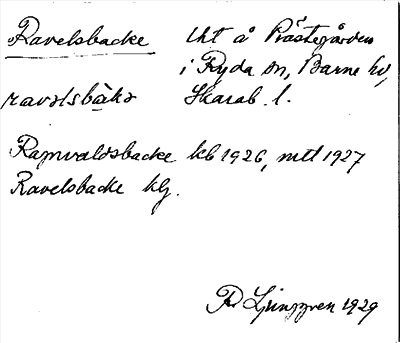 Ravelsbacke lht å Prästgården
i Ryda sn, Barne hd,
ravəlsbakə Skarab. l.
Ragnvaldsbacke kb 1926, mtl 1927
Ravelsbacke kg.
R Ljunggren 1929